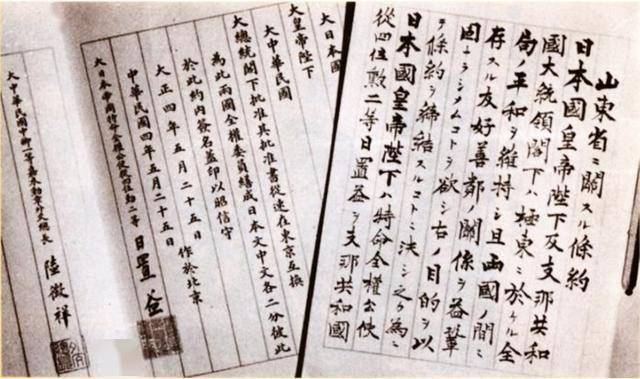 山東省ニ關スル條約
日本國皇帝陛下及支那共和
國大統領閣下ハ極東ニ於ケル全
局ノ平和ヲ維持シ且両國ノ間ニ
存スル友好善鄰ノ關係ヲ益鞏
固ナラシメムコトヲ欲シ右ノ目的ヲ以
テ條約ヲ締結スルコトニ決シ之カ為ニ
日本國皇帝陛下ハ特命全權公使
從四位勲二等日置益ヲ支那共和國
大日本國
大皇帝陛下
大中華民國
大總統閣下批准其批准書從速在東京互換
為此兩國全權委員繕成日本文中文各二分彼此
於此約內簽名蓋印以昭信守
大正四年五月二十五日 作於北京
中華民國四年五月二十五日
大日本帝國特命全權公使從四位勳二等 日置益
大中華民國中卿一等嘉禾勳章外交總長 陸徵祥